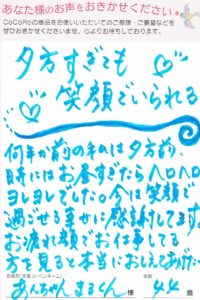 あなた様のお声をおきかせください
CoCoRoの商品をお使いいただいてのご感想・ご要望などを
ぜひおきかせくださいませ。心よりお待ちしております。
夕方すぎても
笑顔でいられる
何年か前の私は夕方前、
時にはお昼すぎたらヘロヘロ
ヨレヨレでした。今は笑顔で
過ごせる幸せに感謝してます。
お疲れ顔でお仕事してる
方を見ると本当におしえてあげたい
お名前
あんちゃんまるくん 様 44 歳